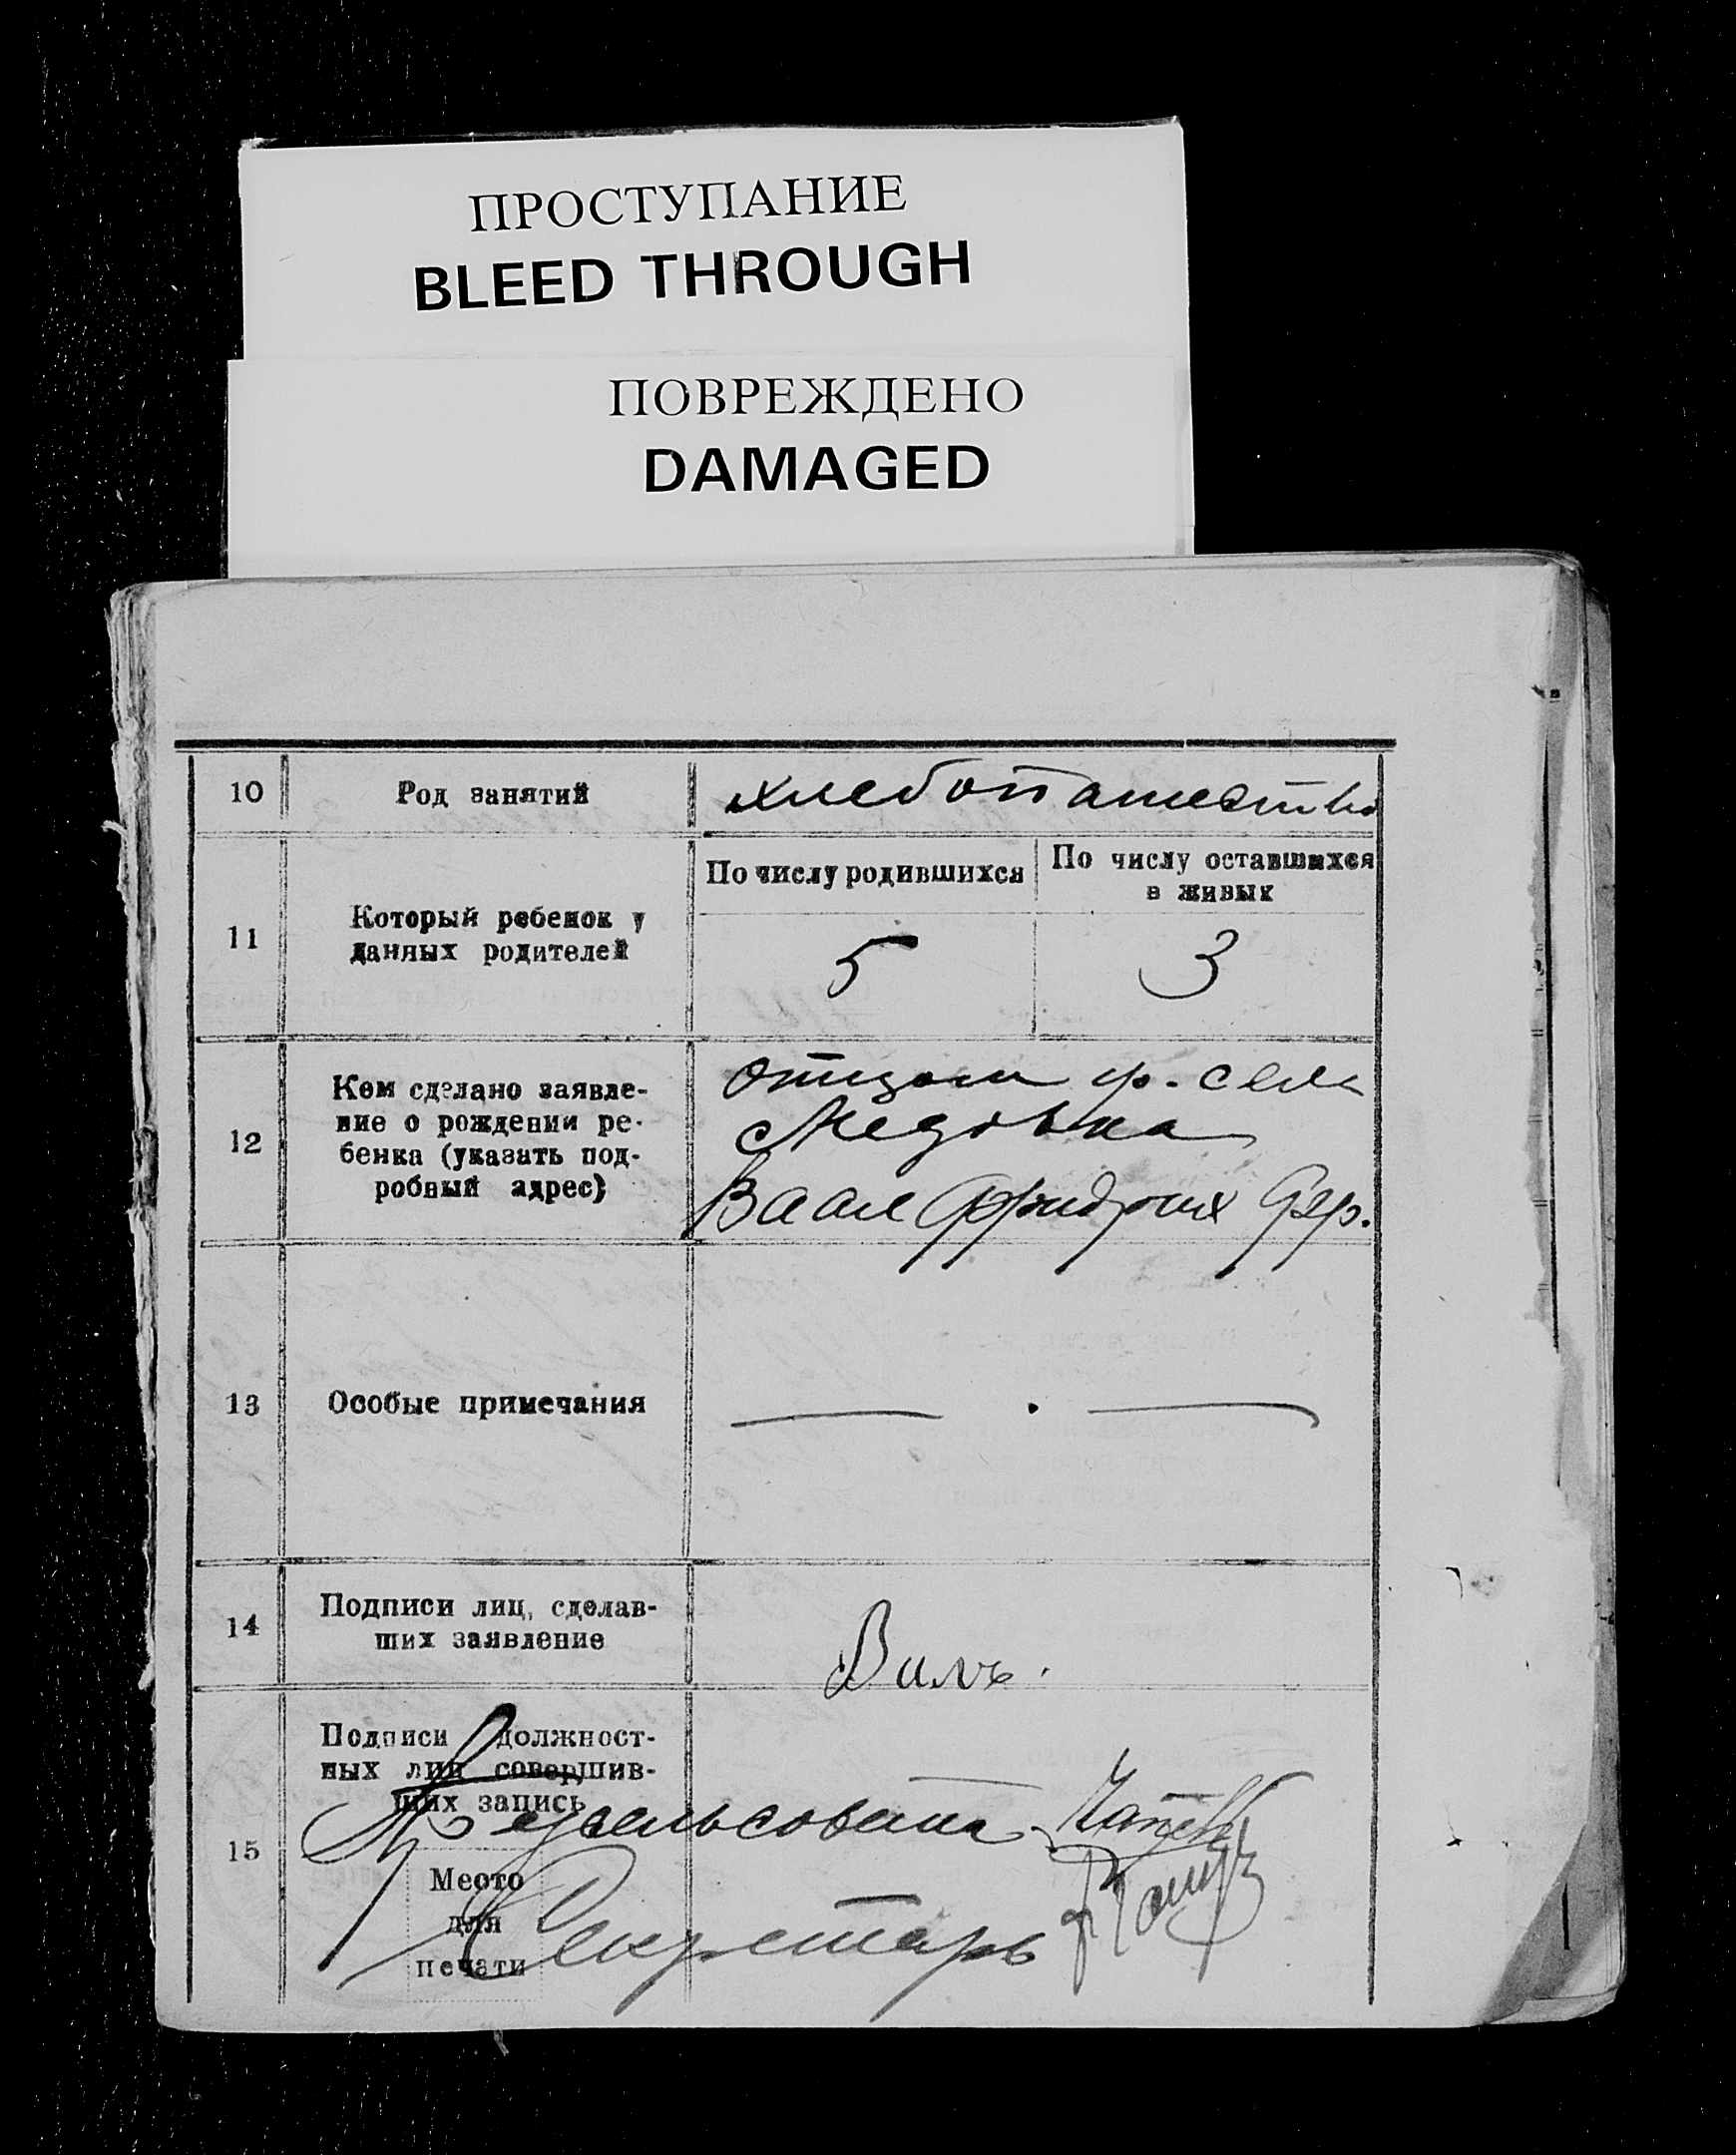 ПРОСТУПАНИЕ
BLEED THROUGH
ПОВРЕЖДЕНО
DAMAGED
10 Род занятий хлебопашество
11 Который ребенок у данных родителей
По числу родившихся
По числу оставшихся
в живых
5 3
12 Кем сделано заявле-
ние о рождении ре-
бенка (указать под-
робный адрес)
отцом гр. села
Медовка
Ваал Фридрих
13 Особые примечания — . —
14 Подписи лиц, сделав-
ших заявление
Валь.
15 Подписи должност-
ных лиц совершив-
ших запись
Пр едсельсовета
Место
для
печати
Секретарь